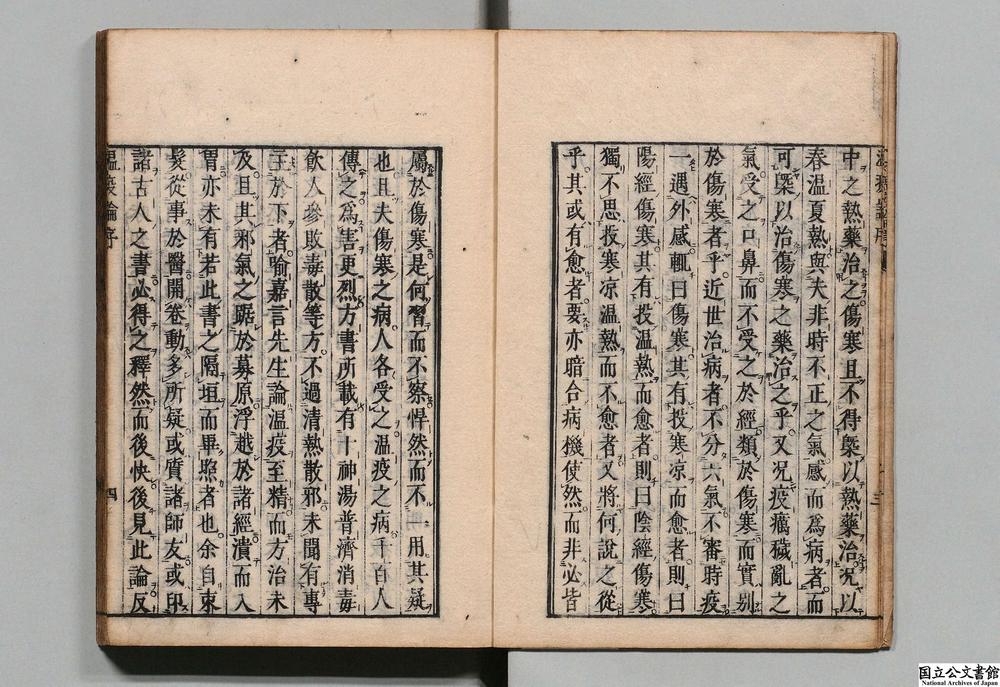 中之熱藥治之傷寒且不得槩以熱藥治况以
春温夏熱與夫非時不正之氣感而爲病者而
可槩以治傷寒之藥治之乎又况疫癘穢亂之
氣受之口鼻而不受之於經類於傷寒而實别
於傷寒者乎近世治病者不分六氣不審時疫
一遇外感輒曰傷寒其有投寒凉而愈者則曰
陽經傷寒其有投温熱而愈者則曰陰經傷寒
獨不思投寒凉温熱而不愈者又將何說之從
乎其或有愈者要亦暗合病機使然而非必皆
三
屬於傷寒是何習而不察悍然而不用其疑
也且夫傷寒之病人各受之温疫之病千百人
傳之爲害更烈方書所載有十神湯普濟消毒
飲人參敗毒散等方不過清熱散邪未聞有專
主於下者喻嘉言先生論温疫至精而方治未
及且其邪氣之踞於募原浮越於諸經潰而入
胃亦未有若此書之隔垣而畢照者也余自束
髪從事於醫開卷動多所疑或質諸師友或印
諸古人之書必得之釋然而後快後見此論反
温疫論序
四
国立公文書館
National Archives of Japan